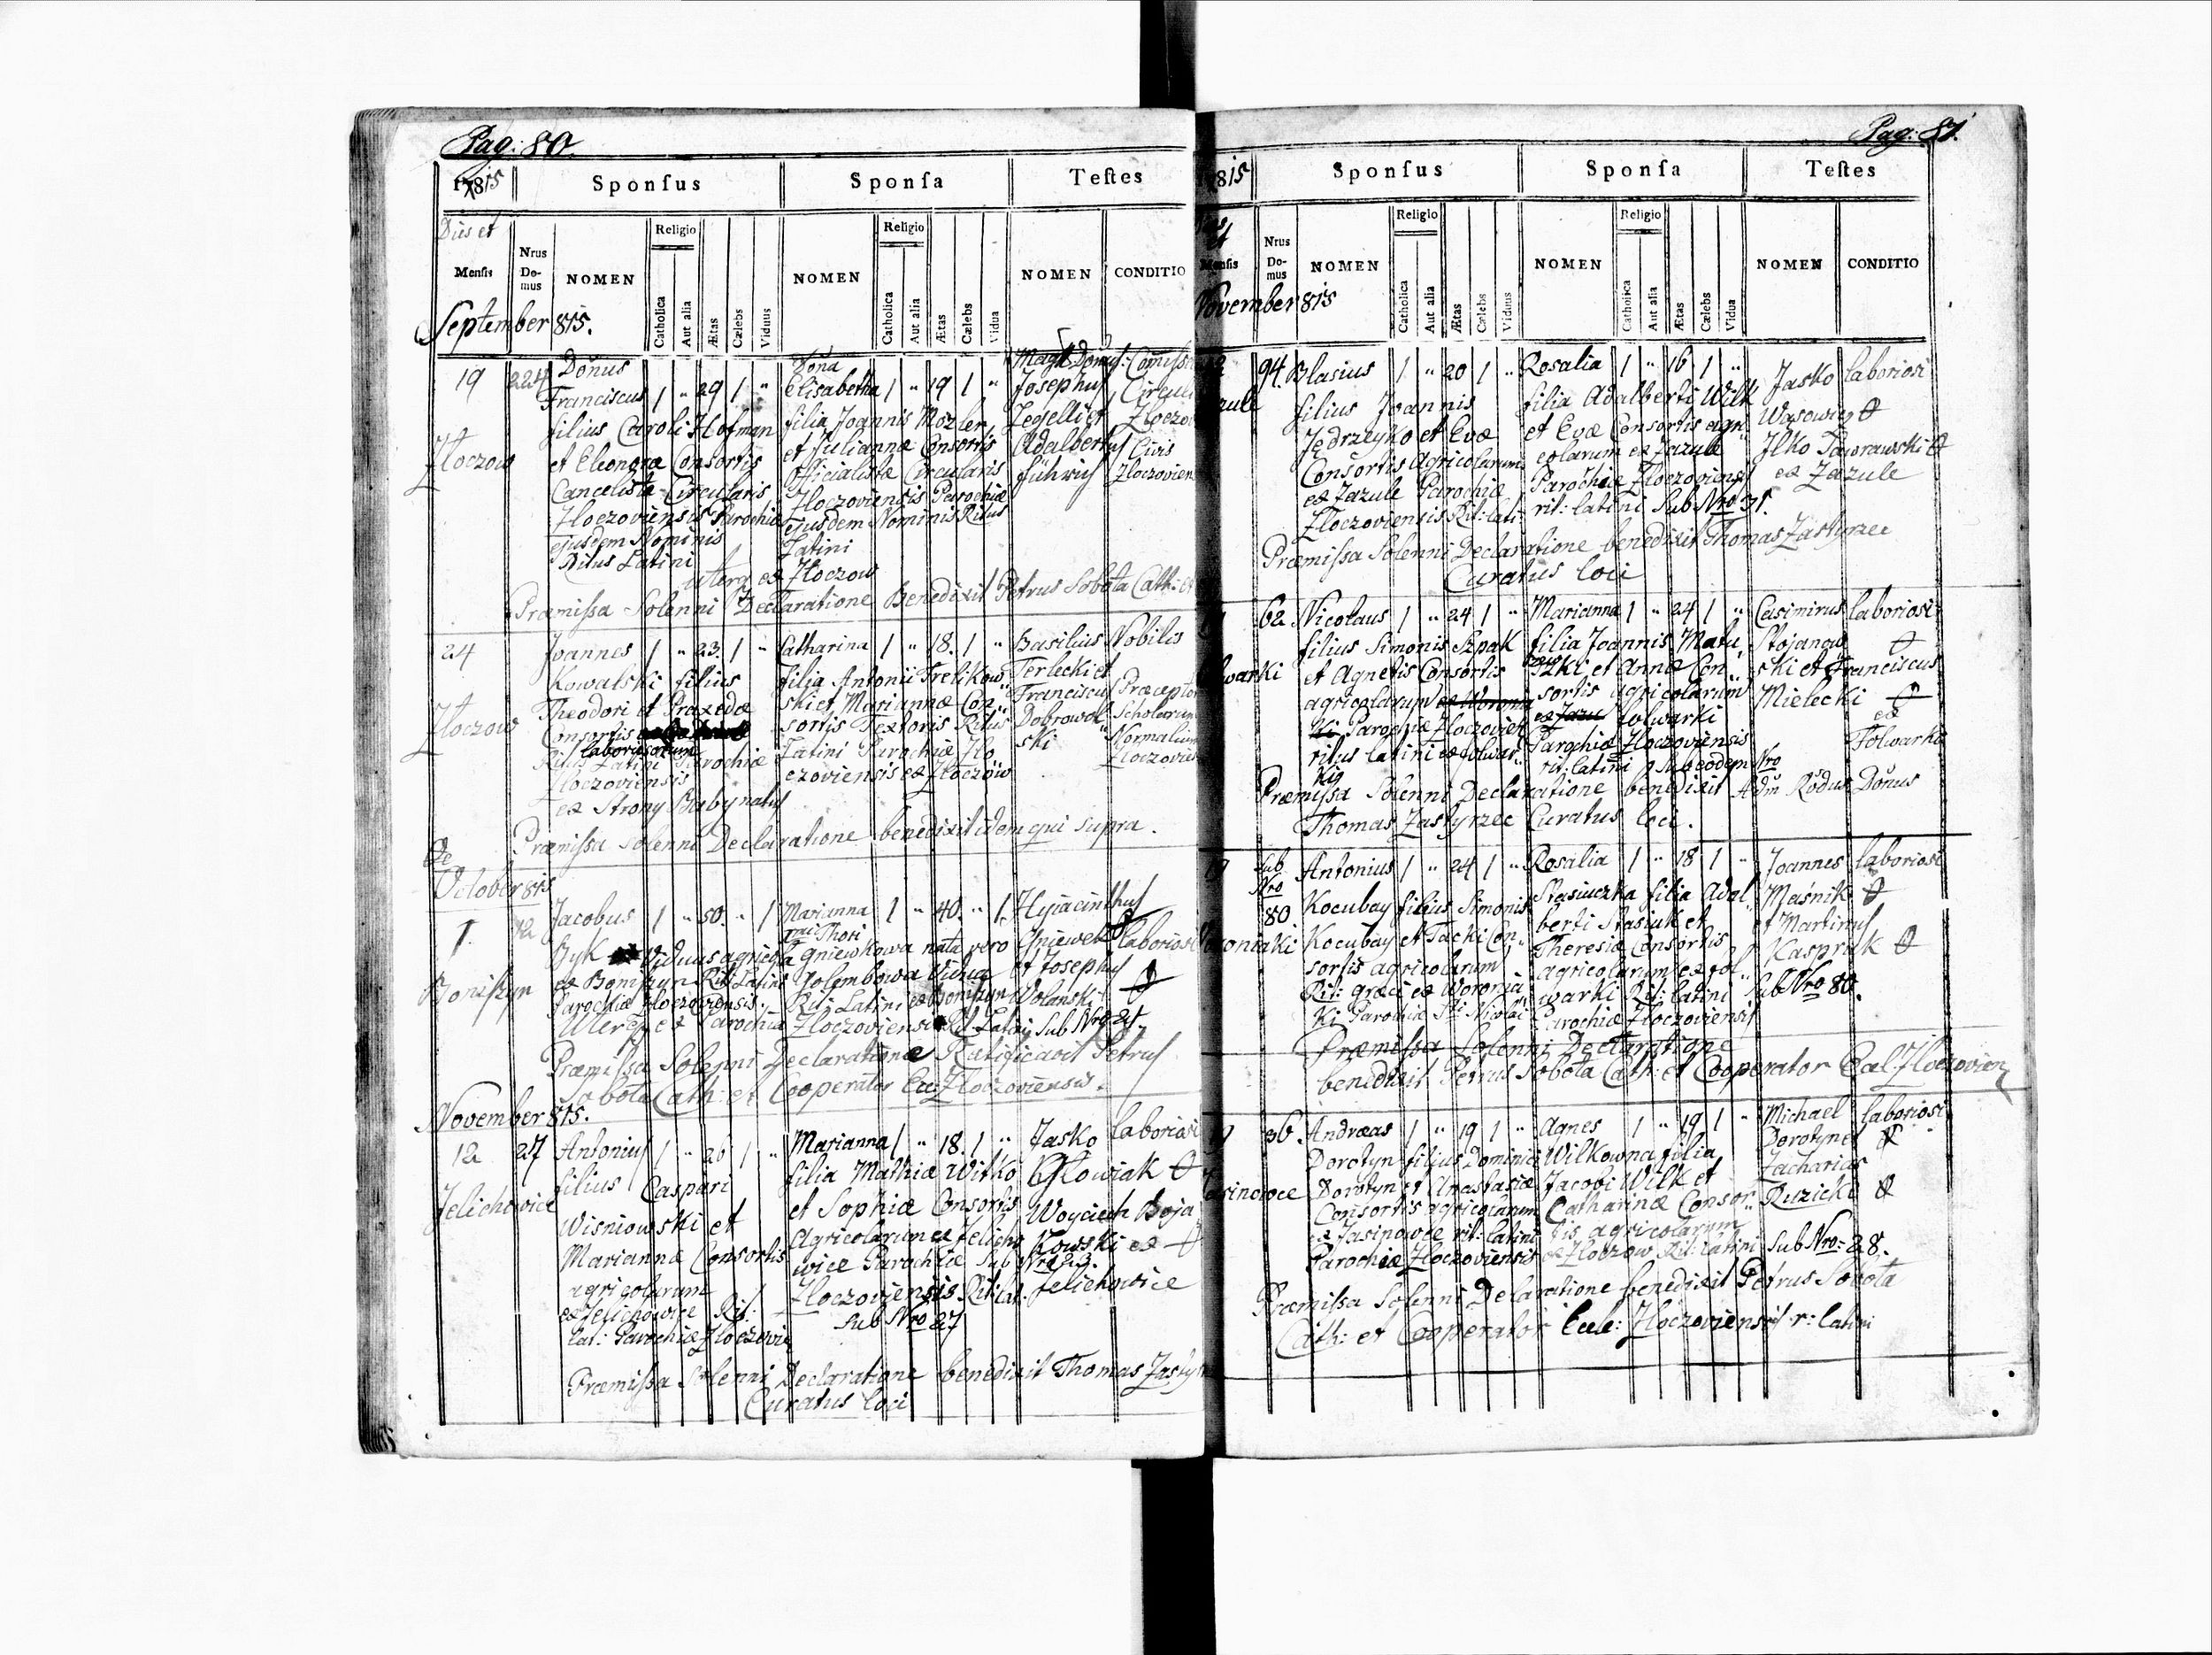 Pag: 80.
1815 Sponsus Sponsa Testes
Dies et
Mensis Nrus Do- mus NOMEN Religio Catholica Aut alia Ætas Cælebs Viduus NOMEN Religio Catholica Aut alia Ætas Cælebs Vidua NOMEN CONDITIO
September 815.
19 224 Donus
Franciscus 1 " 29 1 "
filius Caroli Hofman
et Eleonoræ Consortis
Cancelistæ Circularis
Złoczoviensis Parochiæ
ejusdem Nominis
Ritus Latini
Złoczow
Dona
Elisabetha 1 " 19 1 "
filia Joannis Mozler
et Juliannæ Consortis
Officialistæ Circularis
Złoczoviensis Parochiæ
ejusdem Nominis Ritus
Latini
Josephus
Adalbertus Civis
Præmissa Solenni Declaratione Benedixit Petrus Sobota Cath: et
24 Joannes 1 " 23. 1 "
Kowalski filius
Theodori et Praxedæ
Consortis
laboriosorum
Ritus Latini Parochiæ
Złoczoviensis
Złoczow
Catharina 1 " 18. 1 "
filia Antonii Trelikow
ski et Mariannæ Con
sortis Textoris Ritus
Latini Parochiæ Zło
czoviensis ex Złoczow
Basilius Nobilis
Terlecki et
Franciscus Præceptor
Dobrowol Scholarum
ski Normalium
Præmissa Solenni Declaratione benedixit idem qui supra.
October 815
1. 12 Jacobus 1 " 50. " 1
Byk Viduus agricola
ex Boniszyn Rit: Latini
Parochiæ Złoczoviensis
Boniszyn
Marianna 1 " 40. " 1.
Gniewkowa nata vero
Gołembowa Vidua
Rit: Latini ex Boniszyn
Parochiæ Złoczoviensis Rit: Latini Sub Nro 21.
Hyacinthus
Gniewek laboriosi
et Josephus
Wolanski
Præmissa Solenni Declaratione Ratificavit Petrus
Sobota Cath: et Cooperator Ecc: Złoczoviensis.
November 815.
12 27 Antonius 1 " 26 1 "
filius Caspari
Wisniowski et
Mariannæ Consortis
agricolarum
ex Jelichowice Rit:
Lat: Parochiæ Złoczovien
Jelichowice
Marianna 1 " 18. 1 "
filia Mathiæ Witko
et Sophiæ Consortis
Agricolarum ex Jelicho
wice Parochiæ
Złoczoviensis Rit: Lat.
Sub Nro 27
Jasko laboriosi
Głowiak
Woyciech Boja
kowski ex
Jelichowice
Præmissa Solenni Declaratione benedixit Thomas
Curatus loci
Pag: 81.
1815 Sponsus Sponsa Testes
Dies et
Mensis Nrus Do- mus NOMEN Religio Catholica Aut alia Ætas Cælebs Viduus NOMEN Religio Catholica Aut alia Ætas Cælebs Vidua NOMEN CONDITIO
November 815
94. Blasius 1 " 20 1 "
filius Joannis
Jędrzeyko et Evæ
Consortis Agricolarum
ex Zazule Parochiæ
Złoczoviensis Rit: lati
Rosalia 1 " 16 1 "
filia Adalberti Wilk
et Evæ Consortis agri
colarum ex Zazule
Parochiæ Złoczoviensis
rit: latini Sub Nro 31.
Jasko laboriosi
Ilko
ex Zazule
Præmissa Solenni Declaratione benedixit Thomas Zastyrzec
Curatus loci
62. Nicolaus 1 " 24 1 "
filius Simonis Szpak
et Agnetis Consortis
agricolarum
Parochiæ Złoczovien
ritus latini ex folwar
kis
Marianna 1 " 24 1 "
filia Joannis Matu
et Annæ Con
sortis agricolarum
folwarki
Parochiæ Złoczoviensis
rit: latini sub eodem Nro
Casimirus laboriosi
Stojanow
ski et Franciscus
Mielecki
ex
Folwarki
Præmissa Solenni Declaratione benedixit Adm Rndus Donus
Thomas Zastyrzec Curatus loci.
19 sub Nro 80. Antonius 1 " 24 1 "
Kocubay filius Simonis
Kocubay et Con
sortis agricolarum
Rit: græci ex Woronia
ki Parochiæ Sti Nicolai
Rosalia 1 " 18 1 "
Stasiuczka filia Adal
berti Stasiuk et
Theresiæ Consortis
agricolarum ex fol
warki Rit: latini
Parochiæ Złoczoviensis
Joannes laboriosi
Maśnik
et Martinus
Kasprak
sub Nro 80.
Præmissa Solenni Declaratione
benedixit Petrus Sobota Cath: et Cooperator
19 36. Andreas 1 " 19 1 "
Dorotyn filius Dominici
Dorotyn et Anastasiæ
Consortis agricolarum
ex Jasinowce rit: latini
Parochiæ Złoczoviensis
Agnes 1 " 19 1 "
Wilkowna filia
Jacobi Wilk et
Catharinæ Consor
tis agricolarum
ex Złoczow Rit: latini
Michael laboriosi
Dorotyn et
Zacharias
Ruzicki
Sub Nro: 28.
Præmissa Solenni Declaratione benedixit Petrus Sobota
Cath: et Cooperator Eccle: Złoczoviensis r: latini